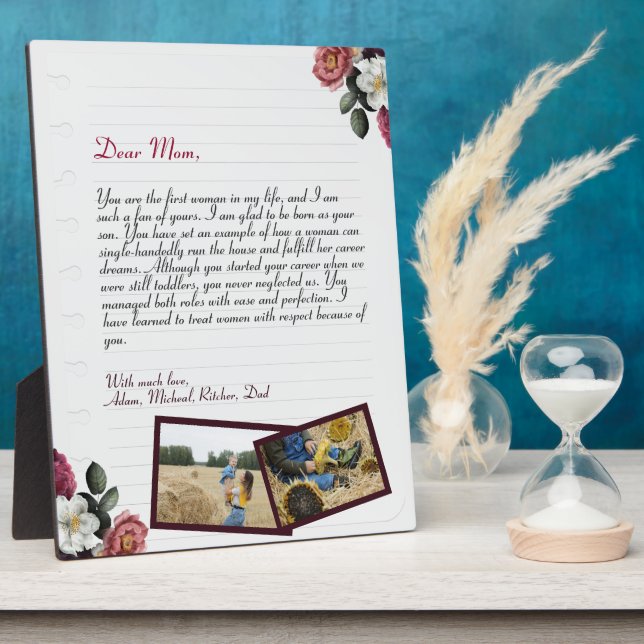 Dear Mom,
You are the first woman in my life, and I am
such a fan of yours. I am glad to be born as your
son. You have set an example of how a woman can
single-handedly run the house and fulfill her career
dreams. Although you started your career when we
were still toddlers, you never neglected us. You
managed both roles with ease and perfection. I
have learned to treat women with respect because of
you.
With much love,
Adam, Micheal, Ritcher, Dad